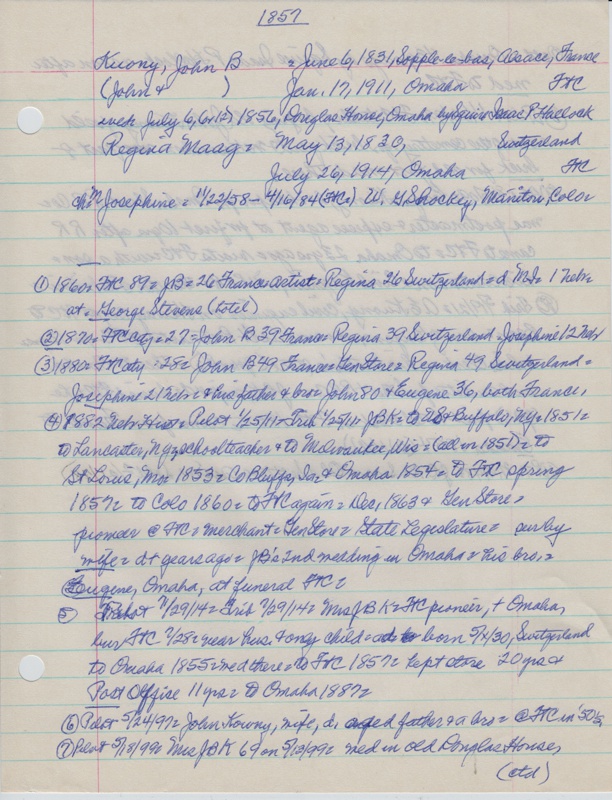 1857
Kuony, John B = June 6, 1831, Sopple-le-bas, Alsace, France
(John & ) Jan. 17, 1911, Omaha FTC
wed July 6, (or 12) 1856, Douglas House, Omaha by Squire Isaac F Hallock
Regina Maag = May 13, 1830, Switzerland
July 26, 1914, Omaha FTC
Josephine = 11/22/58 - 4/16/84 (FTC) W. G Shockey, Manitou, Color
① 1860 = FTC 89 = JB = 26 France artist = Regina 26 Switzerland = d M. J = 1 Nebr
at = George Stevens (hotel)
② 1870 = FTCcty = 27 = John B 39 France = Regina 39 Switzerland Josephine 12 Nebr
③ 1880 = FTCcty = 28 = John B 49 France = GenStore = Regina 49 Switzerland =
Josephine 21 Nebr = & his father & bro = John 80 & Eugene 36, both France,
④ 1882 Nebr Hist = Pilot 1/25/11 = Trib 1/25/11 JBK = to US & Buffalo, NY = 1851 =
to Lancaster, NY, schoolteacher & to Milwaukee, Wis = (all in 1851) = to
St Louis, Mo = 1853 = Co Bluffs, Ia & Omaha 1854 = to FTC spring
1857 = to Colo 1860 = to FTC again = Dec, 1863 & Gen Store =
pioneer @ FTC = merchant = GenStore = State Legislature = sur by
wife = d + years ago = JB's 2nd wedding in Omaha = his bro, =
Eugene, Omaha, at funeral FTC =
5 7/29/14 = Trib 7/29/14 = Mrs JBK = FTC pioneer, + Omaha,
bur FTC 7/28 = near hus. & only child = born 5/x/30, Switzerland
to Omaha 1855 = wed there = to FTC 1857 = kept store 20 yrs &
Post Office 11 yrs = to Omaha 1887 =
⑥ Pilot 5/24/97 = John Kuony, wife, d, aged father & a bro = @ FTC in '50s,
⑦ Pilot 5/18/99 = Mrs JBK 69 on 5/13/99 = wed in old Douglas House,
(ctd)